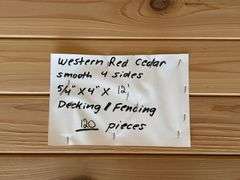 Western Red Cedar
smooth 4 sides
5/4" x 4" x 12'
Decking / Fencing
120 pieces